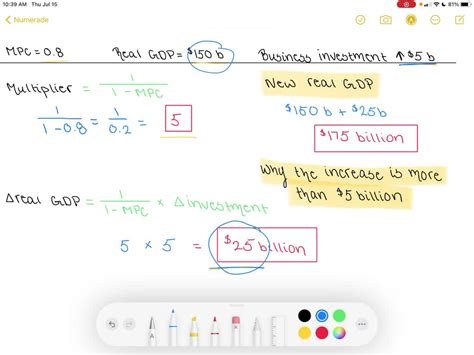 10:39 AM Thu Jul 15
81%
Numerade
MPC = 0.8
Real GDP = $150 b
Business investment ↑ $5 b
Multiplier = 1 / 1 - MPC
1 / 1 - 0.8 = 1 / 0.2 = 5
New real GDP
$150 b + $25b
$175 billion
Why the increase is more
than $5 billion
Δreal GDP = 1 / 1 - MPC × Δinvestment
5 × 5 = $25 billion